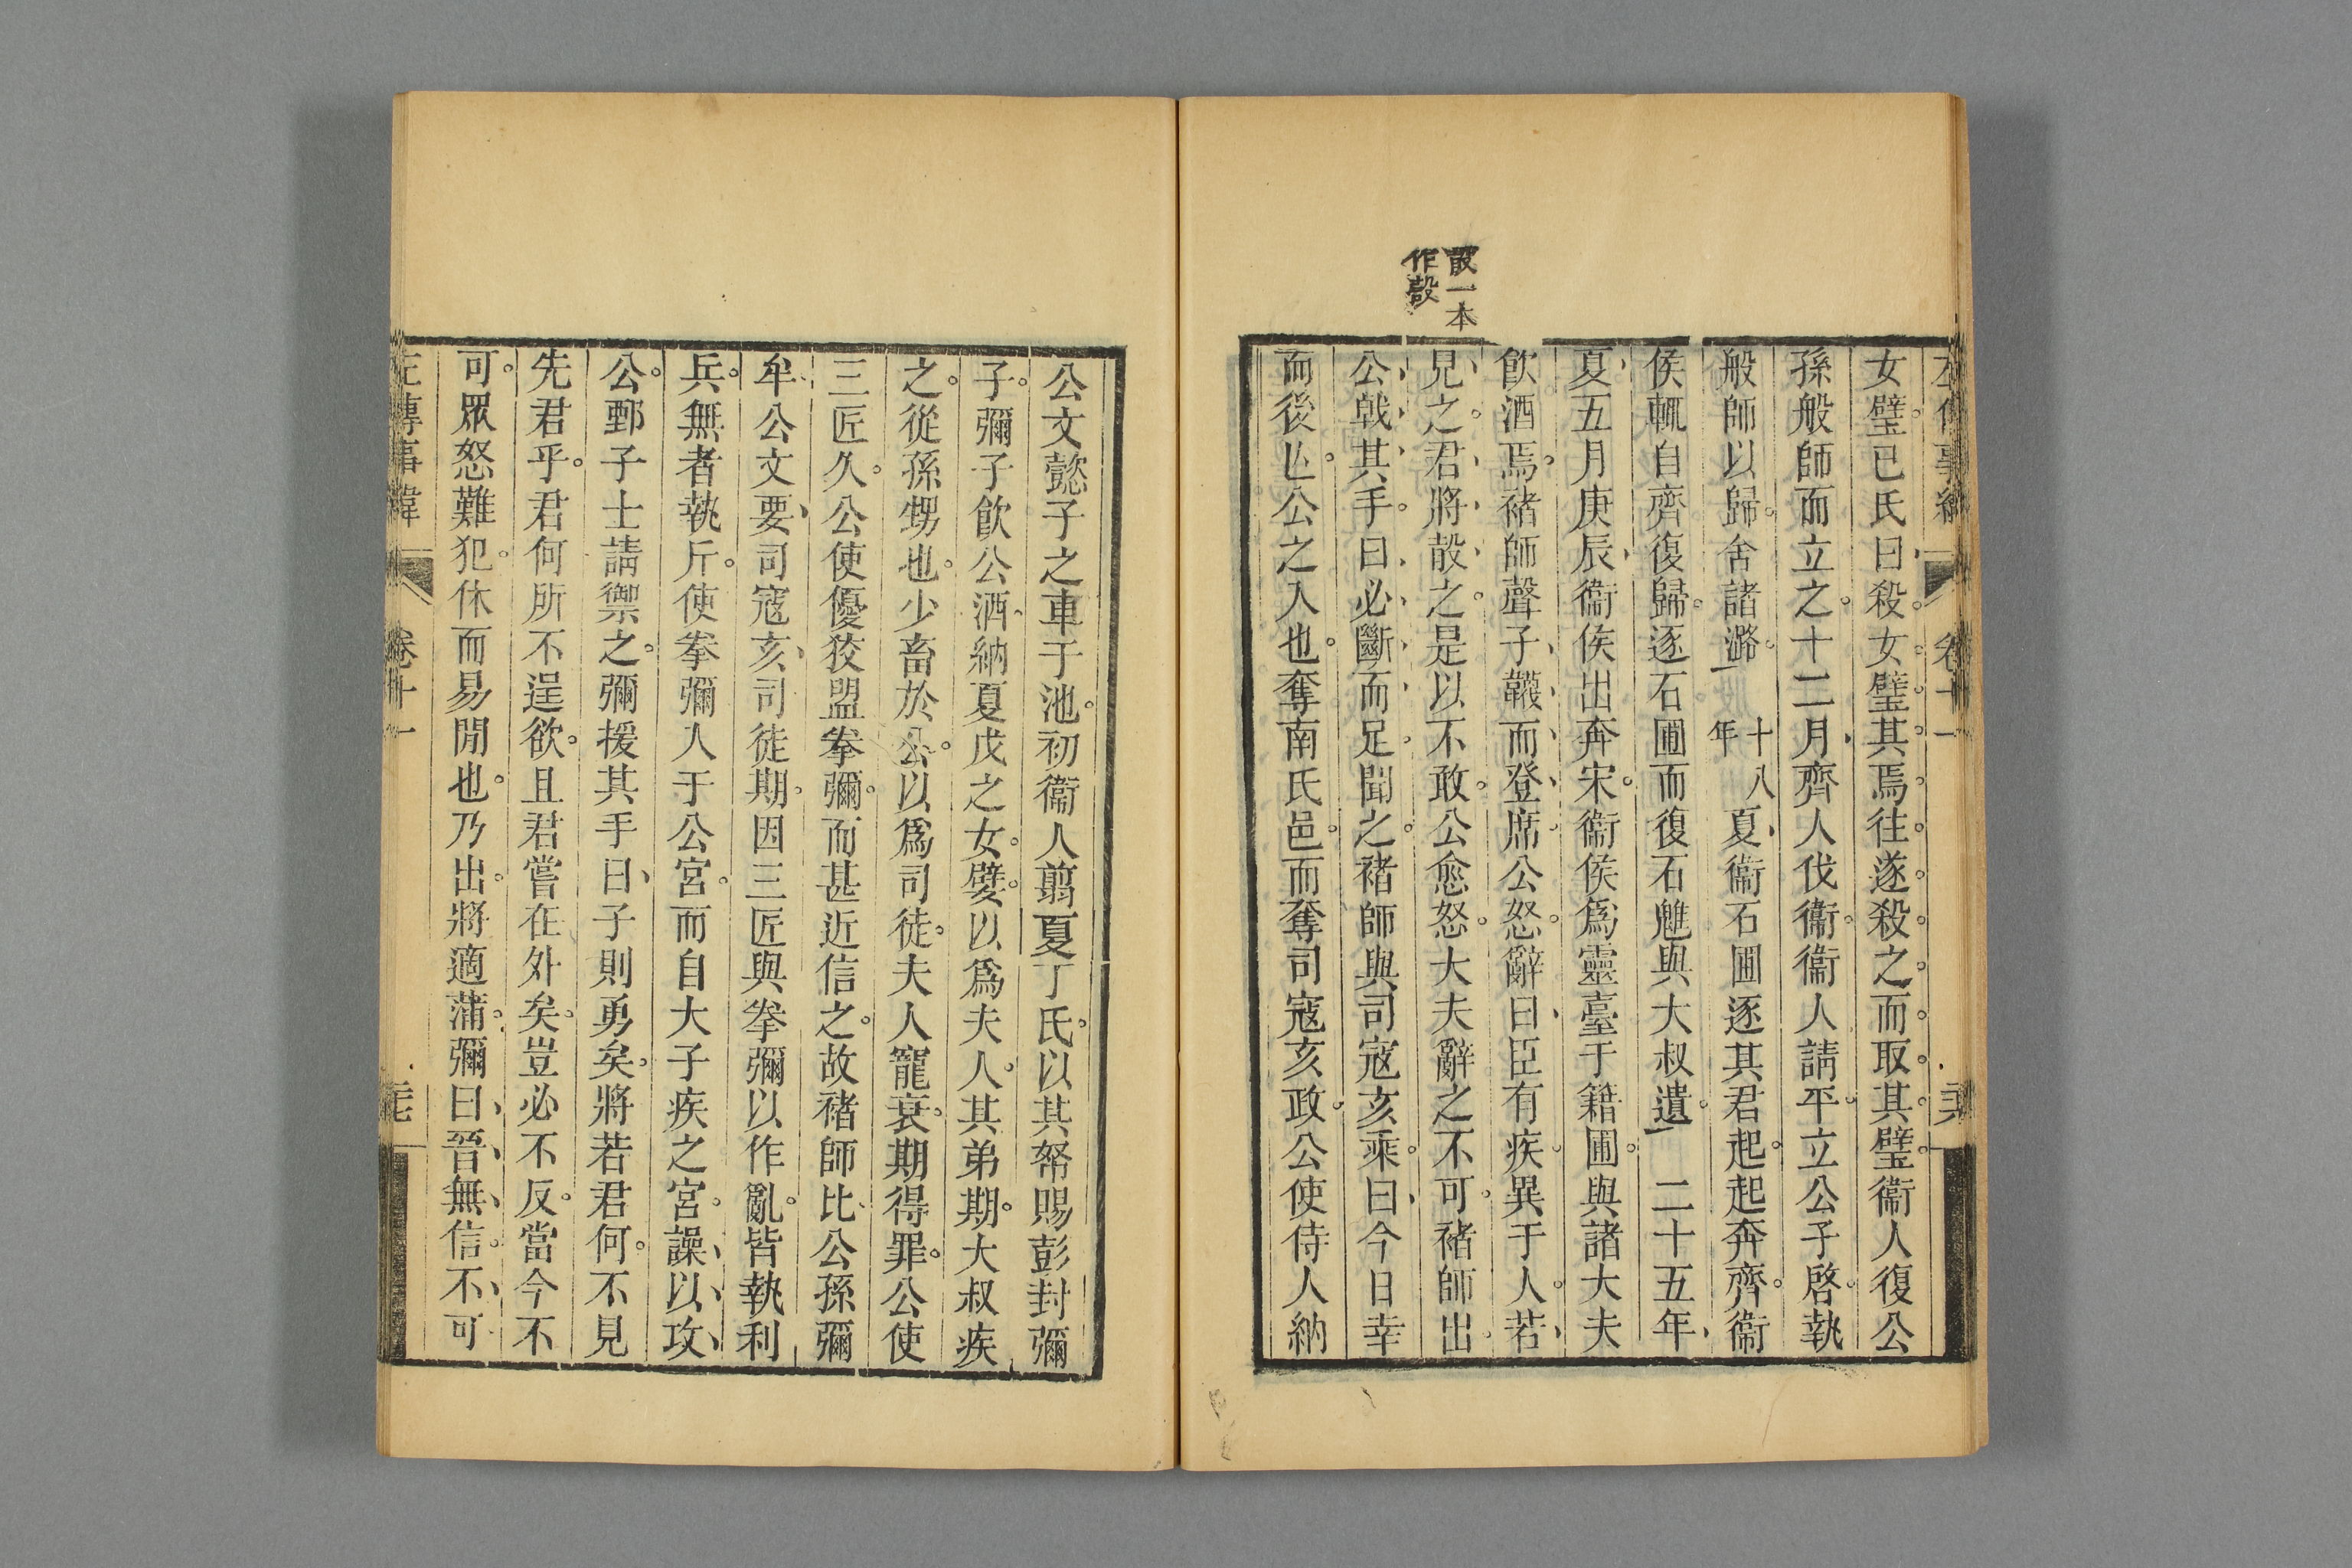 左傳事緯 卷十一 三六
女璧己氏曰殺女璧其焉往遂殺之而取其璧衞人復公
孫般師而立之十二月齊人伐衞衞人請平立公子啓執
般師以歸舍諸潞 十八年 夏衞石圃逐其君起起奔齊衞
侯輒自齊復歸逐石圃而復石魋與大叔遺 二十五年
夏五月庚辰衞侯出奔宋衞侯爲靈臺于籍圃與諸大夫
飮酒焉褚師聲子韈而登席公怒辭曰臣有疾異于人若
見之君將㱿之是以不敢公愈怒大夫辭之不可褚師出
公戟其手曰必斷而足聞之褚師與司寇亥乘曰今日幸
而後亾公之入也奪南氏邑而奪司寇亥政公使侍人納
㱿一本
作㱿
公文懿子之車于池初衞人翦夏丁氏以其帑賜彭封彌
子彌子飮公酒納夏戊之女嬖以爲夫人其弟期大叔疾
之從孫甥也少畜於公以爲司徒夫人寵衰期得罪公使
三匠久公使優狡盟拳彌而甚近信之故褚師比公孫彌
牟公文要司寇亥司徒期因三匠與拳彌以作亂皆執利
兵無者執斤使拳彌入于公宮而自大子疾之宮譟以攻
公鄄子士請禦之彌援其手曰子則勇矣將若君何不見
先君乎君何所不逞欲且君嘗在外矣豈必不反當今不
可眾怒難犯休而易閒也乃出將適蒲彌曰晉無信不可
左傳事緯 卷十一 三七